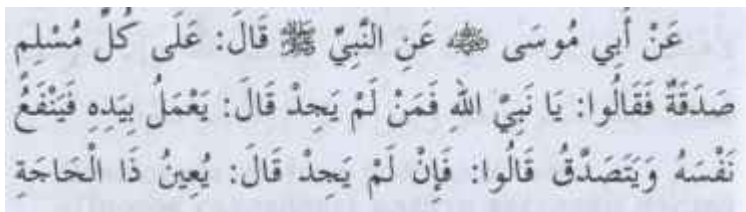 عَنْ أَبِي مُوسَى ﵁ عَنِ النَّبِيِّ ﷺ قَالَ: عَلَى كُلِّ مُسْلِمٍ
صَدَقَةٌ فَقَالُوا: يَا نَبِيَّ اللهِ فَمَنْ لَمْ يَجِدْ قَالَ: يَعْمَلُ بِيَدِهِ فَيَنْفَعُ
نَفْسَهُ وَيَتَصَدَّقُ قَالُوا: فَإِنْ لَمْ يَجِدْ قَالَ: يُعِينُ ذَا الْحَاجَةِ